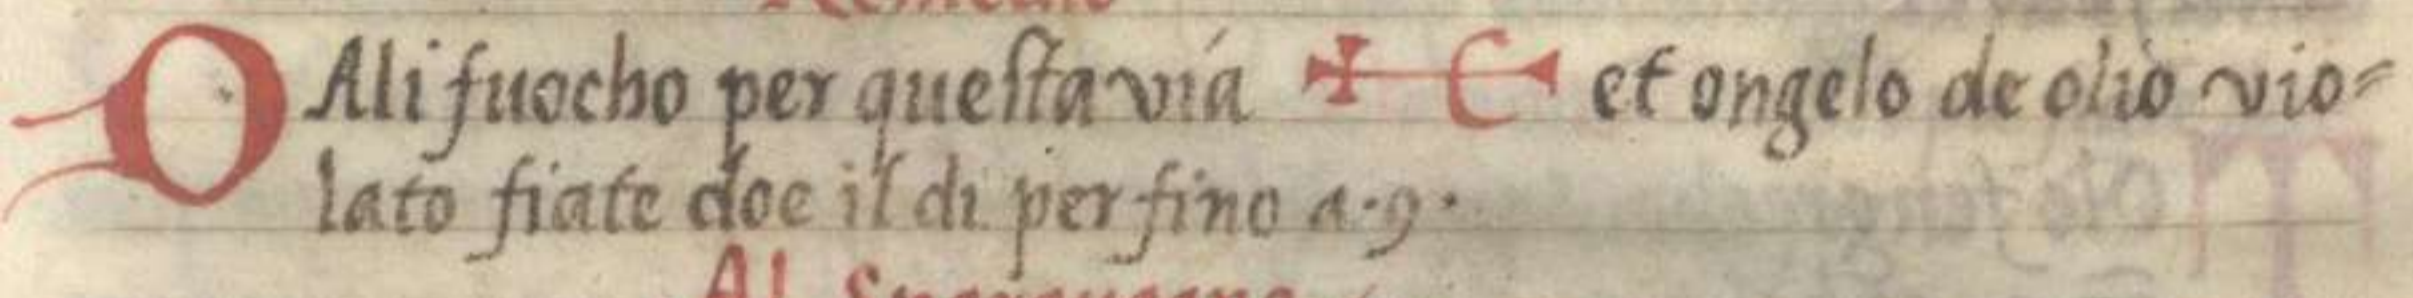 Remedio
DAli fuocho per questa via et ongelo de olio vio-
lato fiate doe il di per fino a .9.
Al